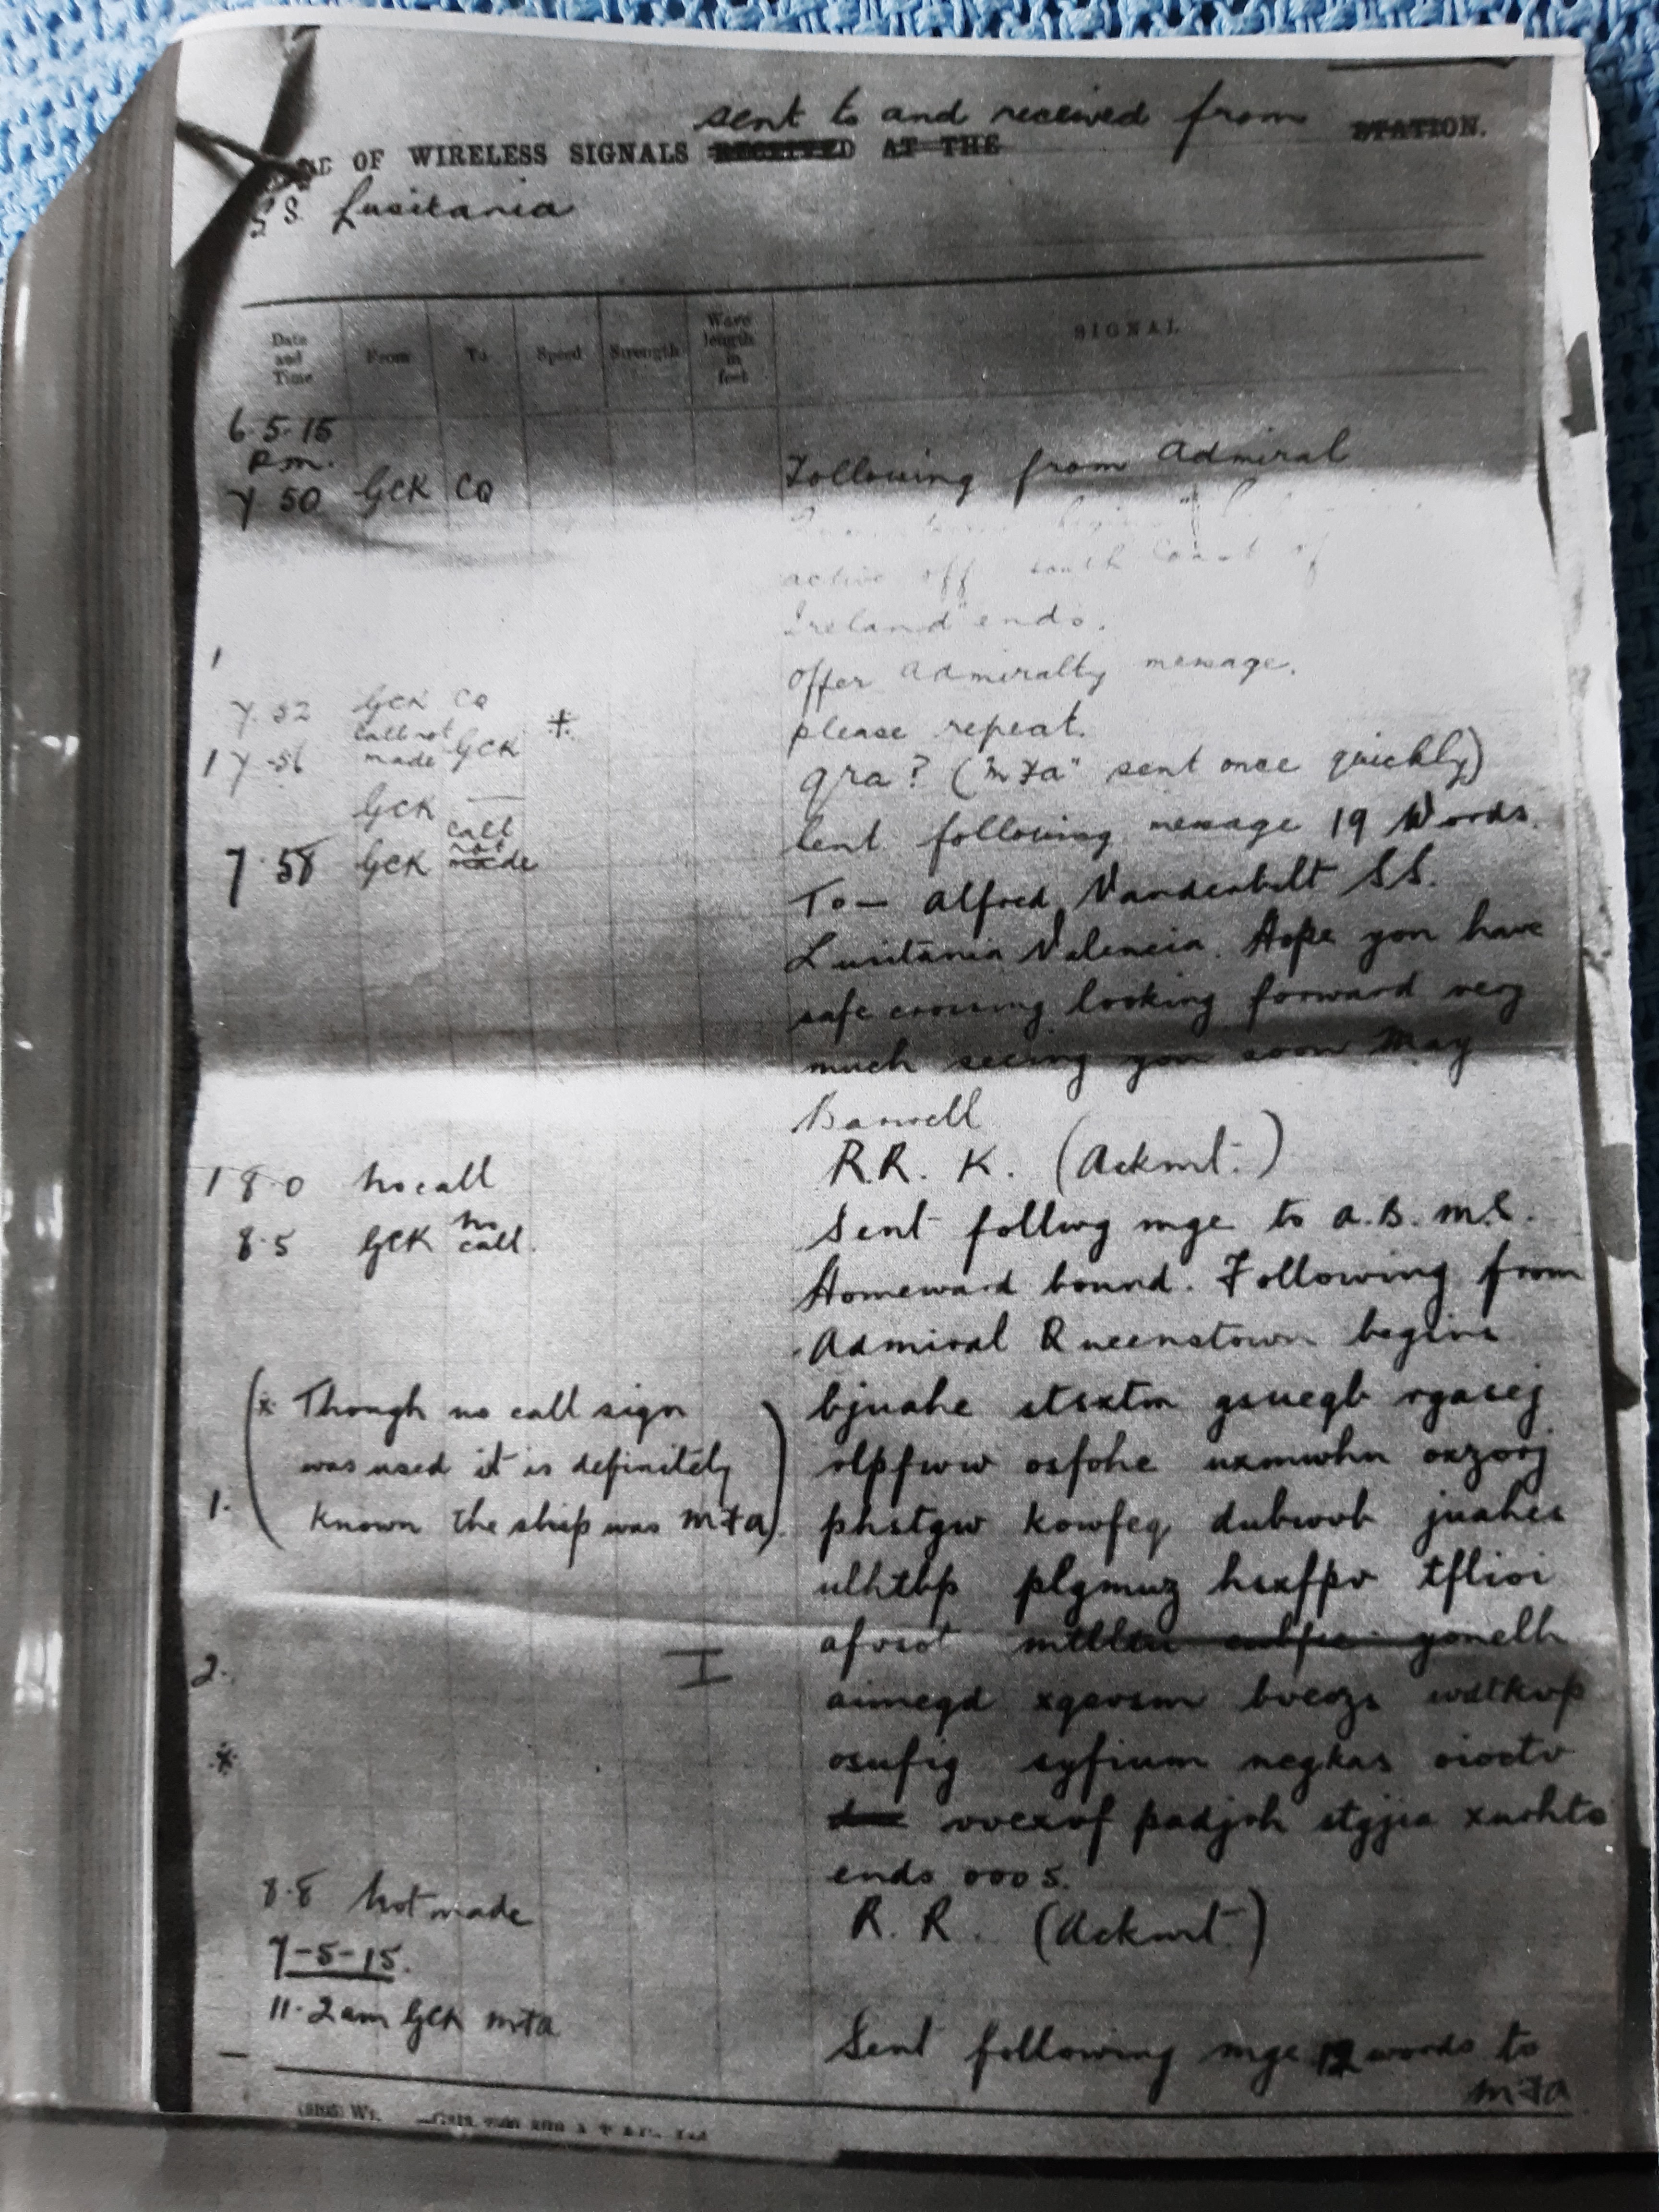 sent to and received from
OF WIRELESS SIGNALS RECEIVED AT THE STATION.
S.S. Lusitania
Date and Time From To Speed Strength Wave length in feet SIGNAL
6.5.15
P.m.
7 50 GCK CQ Following from Admiral
active off south coast of
Ireland" ends.
7.52 GCK CQ offer Admiralty message.
1 7.56 call not made GCK ‡ please repeat.
GCK — qra? ("mFa" sent once quickly)
7.58 GCK call not made Sent following message 19 Words
To— Alfred Vanderbilt SS.
Lusitania Valencia. Hope you have
safe crossing looking forward very
much seeing you soon May
Barwell
1 8.0 No call R.R. K. (Ackmt.)
8.5 GCK no call. Sent follwg mge to A.B.M.S.
Homeward bound. Following from
Admiral Queenstown begins
(* Though no call sign bjuahe stsxtm gsuegb rgasej
was used it is definitely olpfww osfohe uxmwhn oxzorj
1. known the ship was mFa). phstgw kowfeq dubwvb juahes
ulhtbp plgmuz hsxfpv tflioi
2. afvsot yonelh
aimegd xgavsm bveozs wdtkvp
* osufig syfium negkas oioctv
vvexof padjoh stgjsa xuohto
ends 0005.
8.8 Not made R.R. (Ackmt.)
7-5-15.
11.2am GCK mFa Sent following mge 12 words to
mFa